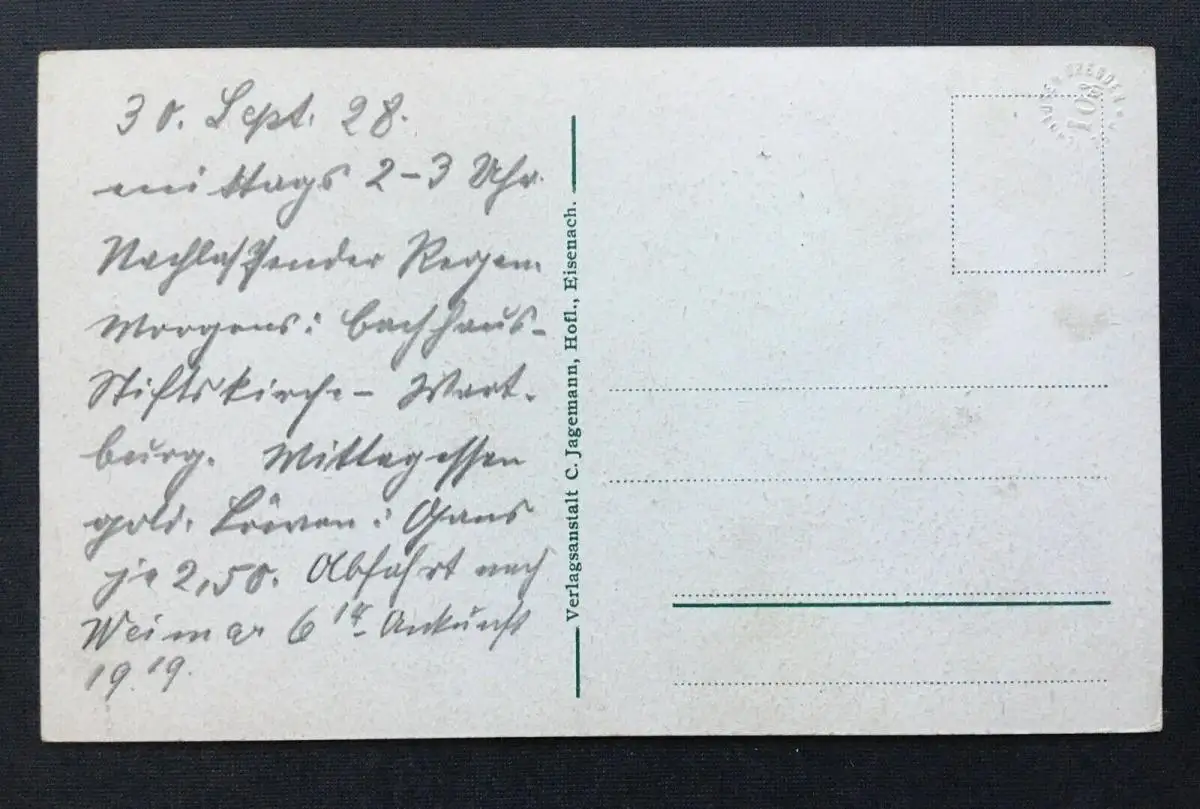 30. Sept. 28.
mittags 2-3 Uhr.
Nachlassender Regen.
Morgens: Bachhaus-
Stiftskirche - Wart-
burg. Mittagessen
gold. Löwen: Gans
je 2,50. Abfahrt nach
Weimar 6 - Ankunft
19.19.
Verlagsanstalt C. Jagemann, Hofl., Eisenach.
DRESDEN
108